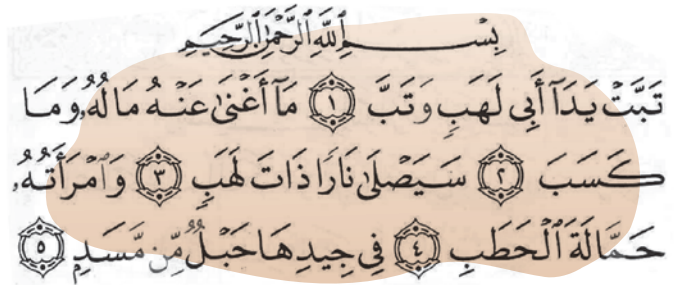 بِسْمِ ٱللَّهِ ٱلرَّحْمَٰنِ ٱلرَّحِيمِ
تَبَّتْ يَدَآ أَبِى لَهَبٍ وَتَبَّ ١ مَآ أَغْنَىٰ عَنْهُ مَالُهُۥ وَمَا
كَسَبَ ٢ سَيَصْلَىٰ نَارًا ذَاتَ لَهَبٍ ٣ وَٱمْرَأَتُهُۥ
حَمَّالَةَ ٱلْحَطَبِ ٤ فِى جِيدِهَا حَبْلٌ مِّن مَّسَدٍۭ ٥